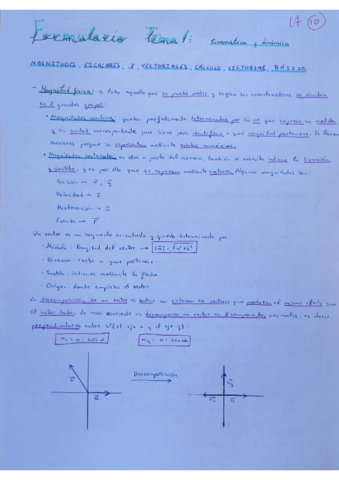 LA 10
Formulario Tema 1: Cinemática y dinámica
MAGNITUDES, ESCALARES Y VECTORIALES, CÁLCULO VECTORIAL BÁSICO
- Magnitud física: es todo aquello que se puede medir y según sus características se dividen
en 2 grandes grupos:
• Magnitudes escalares: quedan perfectamente determinadas por un nº que expresa su medida
y su unidad correspondiente que sirve para identificar a qué magnitud pertenece. Se llaman
escalares porque se representan mediante escalas numéricas.
• Magnitudes vectoriales: en ellas a parte del número, también se necesita indicar la dirección
y sentido, y es por ello que se expresan mediante vectores. Algunas magnitudes son:
Posición →
Velocidad → v
Aceleración → a
Fuerza → F
Un vector es un segmento orientado y queda determinado por:
- Módulo: longitud del vector →
- Dirección: recta a que pertenece
- Sentido: indicado mediante la flecha
- Origen: donde empieza el vector.
La descomposición de un vector es hallar un sistema de vectores que producen el mismo efecto que
el vector dado. Lo más corriente es descomponer un vector en 2 componentes, es decir,
perpendiculares entre sí (el eje x y el eje y):
Descomposición